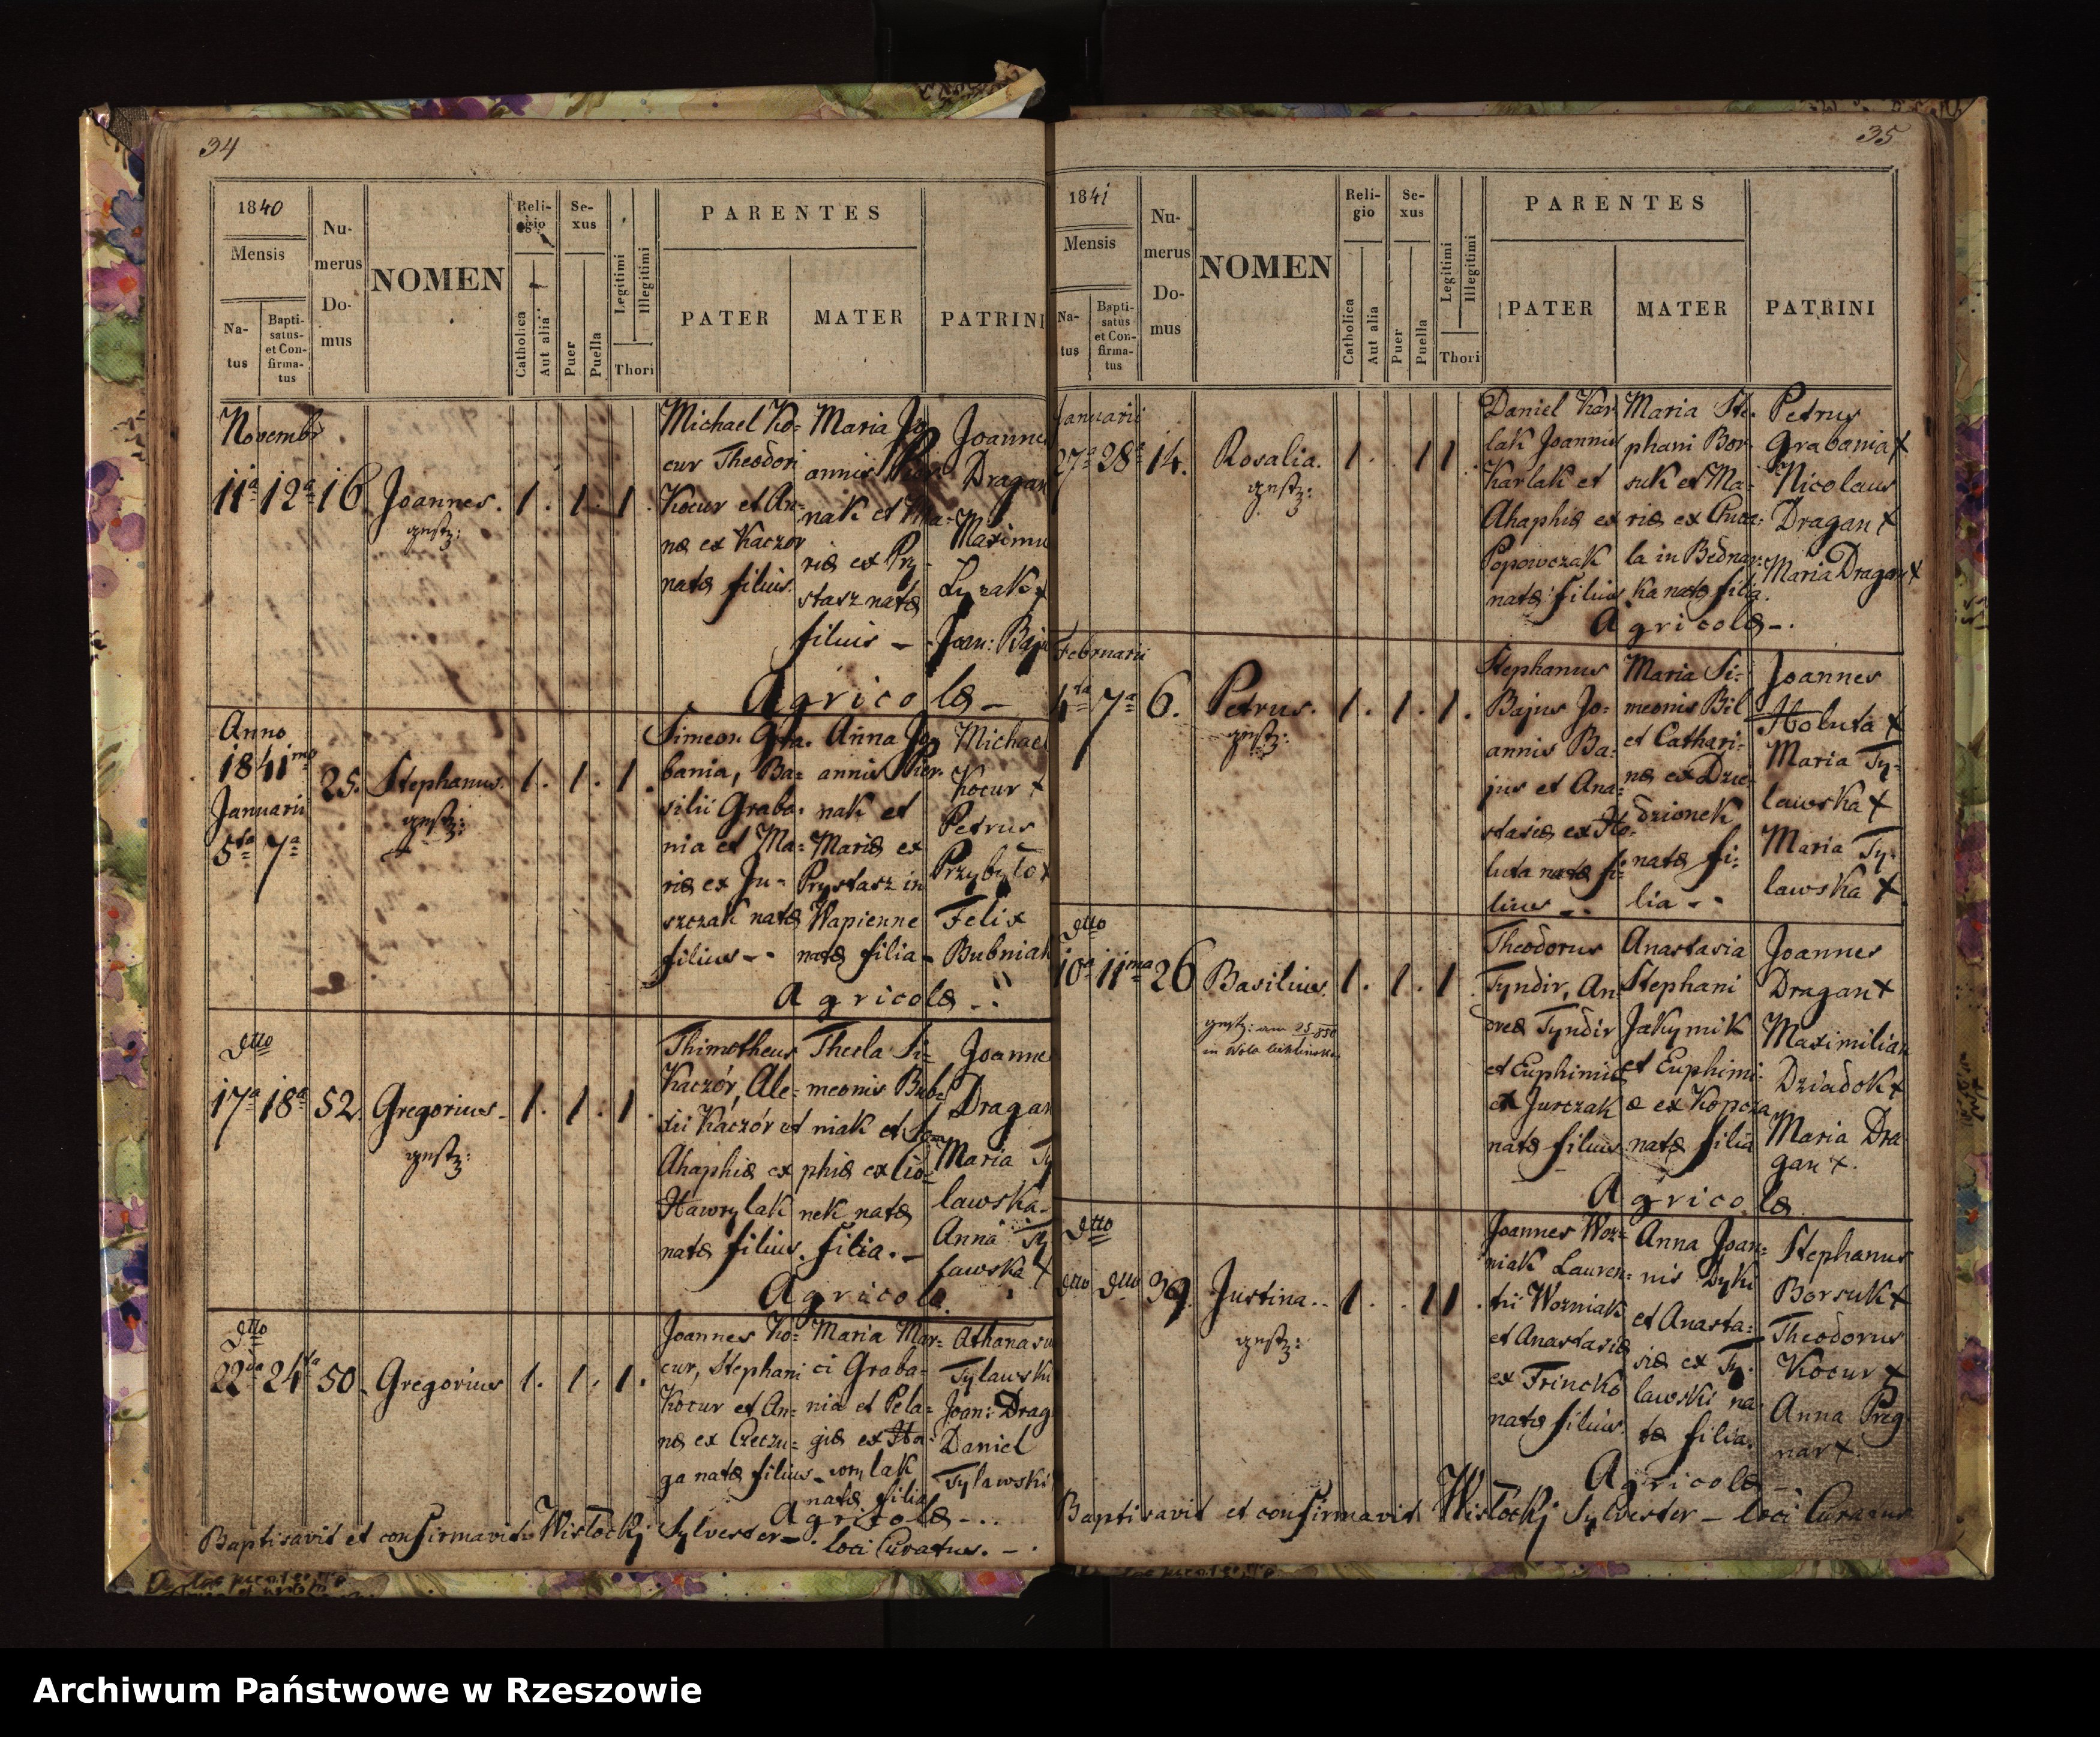 34
1840
Mensis
Na-
tus
Bapti-
satus-
et Con-
firma-
tus
Nu-
merus
Do-
mus
NOMEN
Reli-
gio
Catholica
Aut alia
Se-
xus
Puer
Puella
Legitimi
Illegitimi
Thori
PARENTES
PATER
MATER
PATRINI
Novembr
11a 12a 16. Joannes. 1. 1. 1.
gestz:
Michael Ko-
cur Theodori
Kocur et An-
næ ex Kaczor
natæ filius.
Maria Jo-
annis Pier-
nak et Ma-
riæ ex Pry-
stasz natæ
filuis -
Joanne
Dragan
Maximu
Lyzak +
Joan: Baju
Agricolæ -
Anno
1841mo
Januarii
5ta 7a
25. Stephanus. 1. 1. 1.
gestz:
Simeon Gra-
bania, Ba-
silii Graba-
nia et Ma-
riæ ex Ju-
szczak natæ
filius - -
Anna Jo-
annis Pier-
nak et
Mariæ ex
Prystasz in
Wapienne
natæ filia -
Michael
Kocur +
Petrus
Przybyło +
Felix
Bubniak
Agricolæ -
dtto
17a 18a 52. Gregorius - 1. 1. 1.
gestz:
Thimotheus
Kaczór, Ale-
xii Kaczór et
Ahaphiæ ex
Hawrylak
natæ filius.
Thecla Si-
meonis Bub-
niak et So-
phiæ ex Cio-
nek natæ
filia. -
Joanne
Dragan
Maria Ty
lawska -
Anna Ty
lawska +
Agricolæ.
dtto
22da 24ta 50. Gregorius 1. 1. 1.
Joannes Ko-
cur, Stephani
Kocur et An-
næ ex Czeczu-
ga natæ filius -
Maria Mar-
ci Graba-
nia et Pela-
giæ ex Ha-
wrylak
natæ filia
Athanasiu
Tylawski
Joan: Drag
Daniel
Tylawski
Agricolæ - . .
Baptisavit et confirmavit Wisłocky Sylvester - loci Curatus. -
35
1841
Mensis
Na-
tus
Bapti-
satus
et Con-
firma-
tus
Nu-
merus
Do-
mus
NOMEN
Reli-
gio
Catholica
Aut alia
Se-
xus
Puer
Puella
Legitimi
Illegitimi
Thori
PARENTES
PATER
MATER
PATRINI
Januarii
27a 28a 14. Rosalia. 1. . 1 1.
gestz:
Daniel Kar-
lak Joannis
Karlak et
Ahaphiæ ex
Popowczak
natæ filius
Maria Ste-
phani Bor-
suk et Ma-
riæ ex
la in Bednar-
ka natæ filia.
Petrus
Grabania +
Nicolaus
Dragan +
Maria Dragan +
Agricolæ - .
Februarii
7a 6. Petrus. 1. 1. 1.
gestz:
Stephanus
Bajus Jo-
annis Ba-
jus et Ana-
stasiæ ex Ho-
luta natæ fi-
lius - .
Maria Si-
meonis Bil
et Cathari-
næ ex Dzie-
dzionek
natæ fi-
lia - .
Joannes
Holuta +
Maria Ty-
lawska +
Maria Ty-
lawska +
dtto
10a 11ma 26 Basilius. 1. 1. 1.
in Wola
Theodorus
Tyndir, An-
dreæ Tyndir
et Euphimiæ
ex Jurczak
natæ filius.
Anastasia
Stephani
Jakymik
et Euphimi-
æ ex Kopcza
natæ filia
Joannes
Dragan +
Maximilian
Dziadok +
Maria Dra
gan +.
Agricolæ
dtto
dtto dtto 39. Justina.. 1. . 1 1.
gestz:
Joannes Woz-
niak Lauren-
tii Wozniak
et Anastasiæ
ex Trincko
natæ filius.
Anna Joan-
nis Dyki
et Anasta-
siæ ex Ty-
lawski na-
tæ filia.
Stephanus
Borsuk +
Theodorus
Kocur +
Anna Preg
nar +.
Agricolæ
Baptisavit et confirmavit Wisłocky Sylvester - loci Curatus
Archiwum Państwowe w Rzeszowie